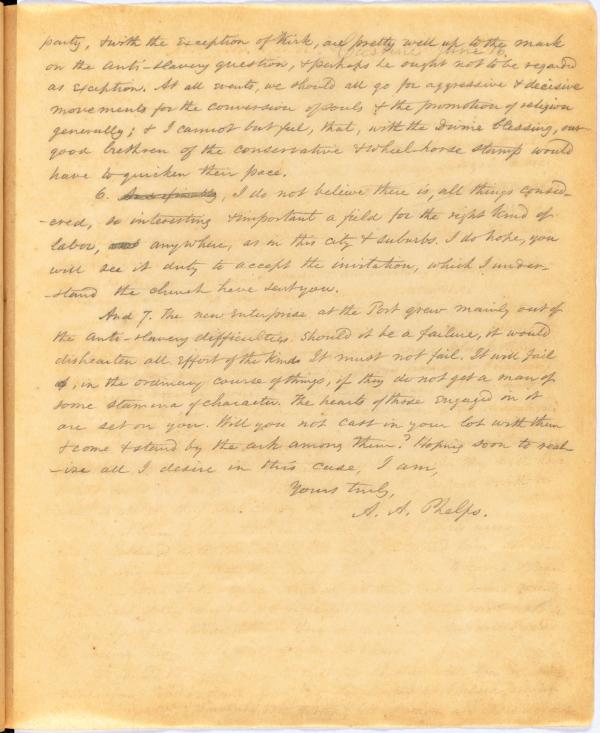 party, & with the Exception of Kirk, are pretty well up to the mark
on the anti-slavery question, & perhaps he ought not to be regarded
as exception. At all events, we should all go for aggressive & decisive
movements for the conversion of souls & the promotion of religion
generally; & I cannot but feel, that, with the Divine blessing, our
good brethren of the conservative & wheel-horse stamp would
have to quicken their pace.
6. And finally, I do not believe there is, all things consid-
-ered, so interesting & important a field for the right kind of
labor, anywhere, as in this city & suburbs. I do hope, you
will see it duty to accept the invitation, which I under-
-stand the church have sent you.
And 7. The new Enterprise at the Port grew mainly out of
the anti-slavery difficulties. Should it be a failure, it would
dishearten all Effort of the kind. It must not fail. It will fail
, in the ordinary course of things, if they do not get a man of
some stamina of character. The hearts of those Engaged in it
are set on you. Will you not cast in your lot with them
& come & stand by the ark among them? Hoping soon to real-
-ize all I desire in this case, I am,
Yours truly,
A. A. Phelps.